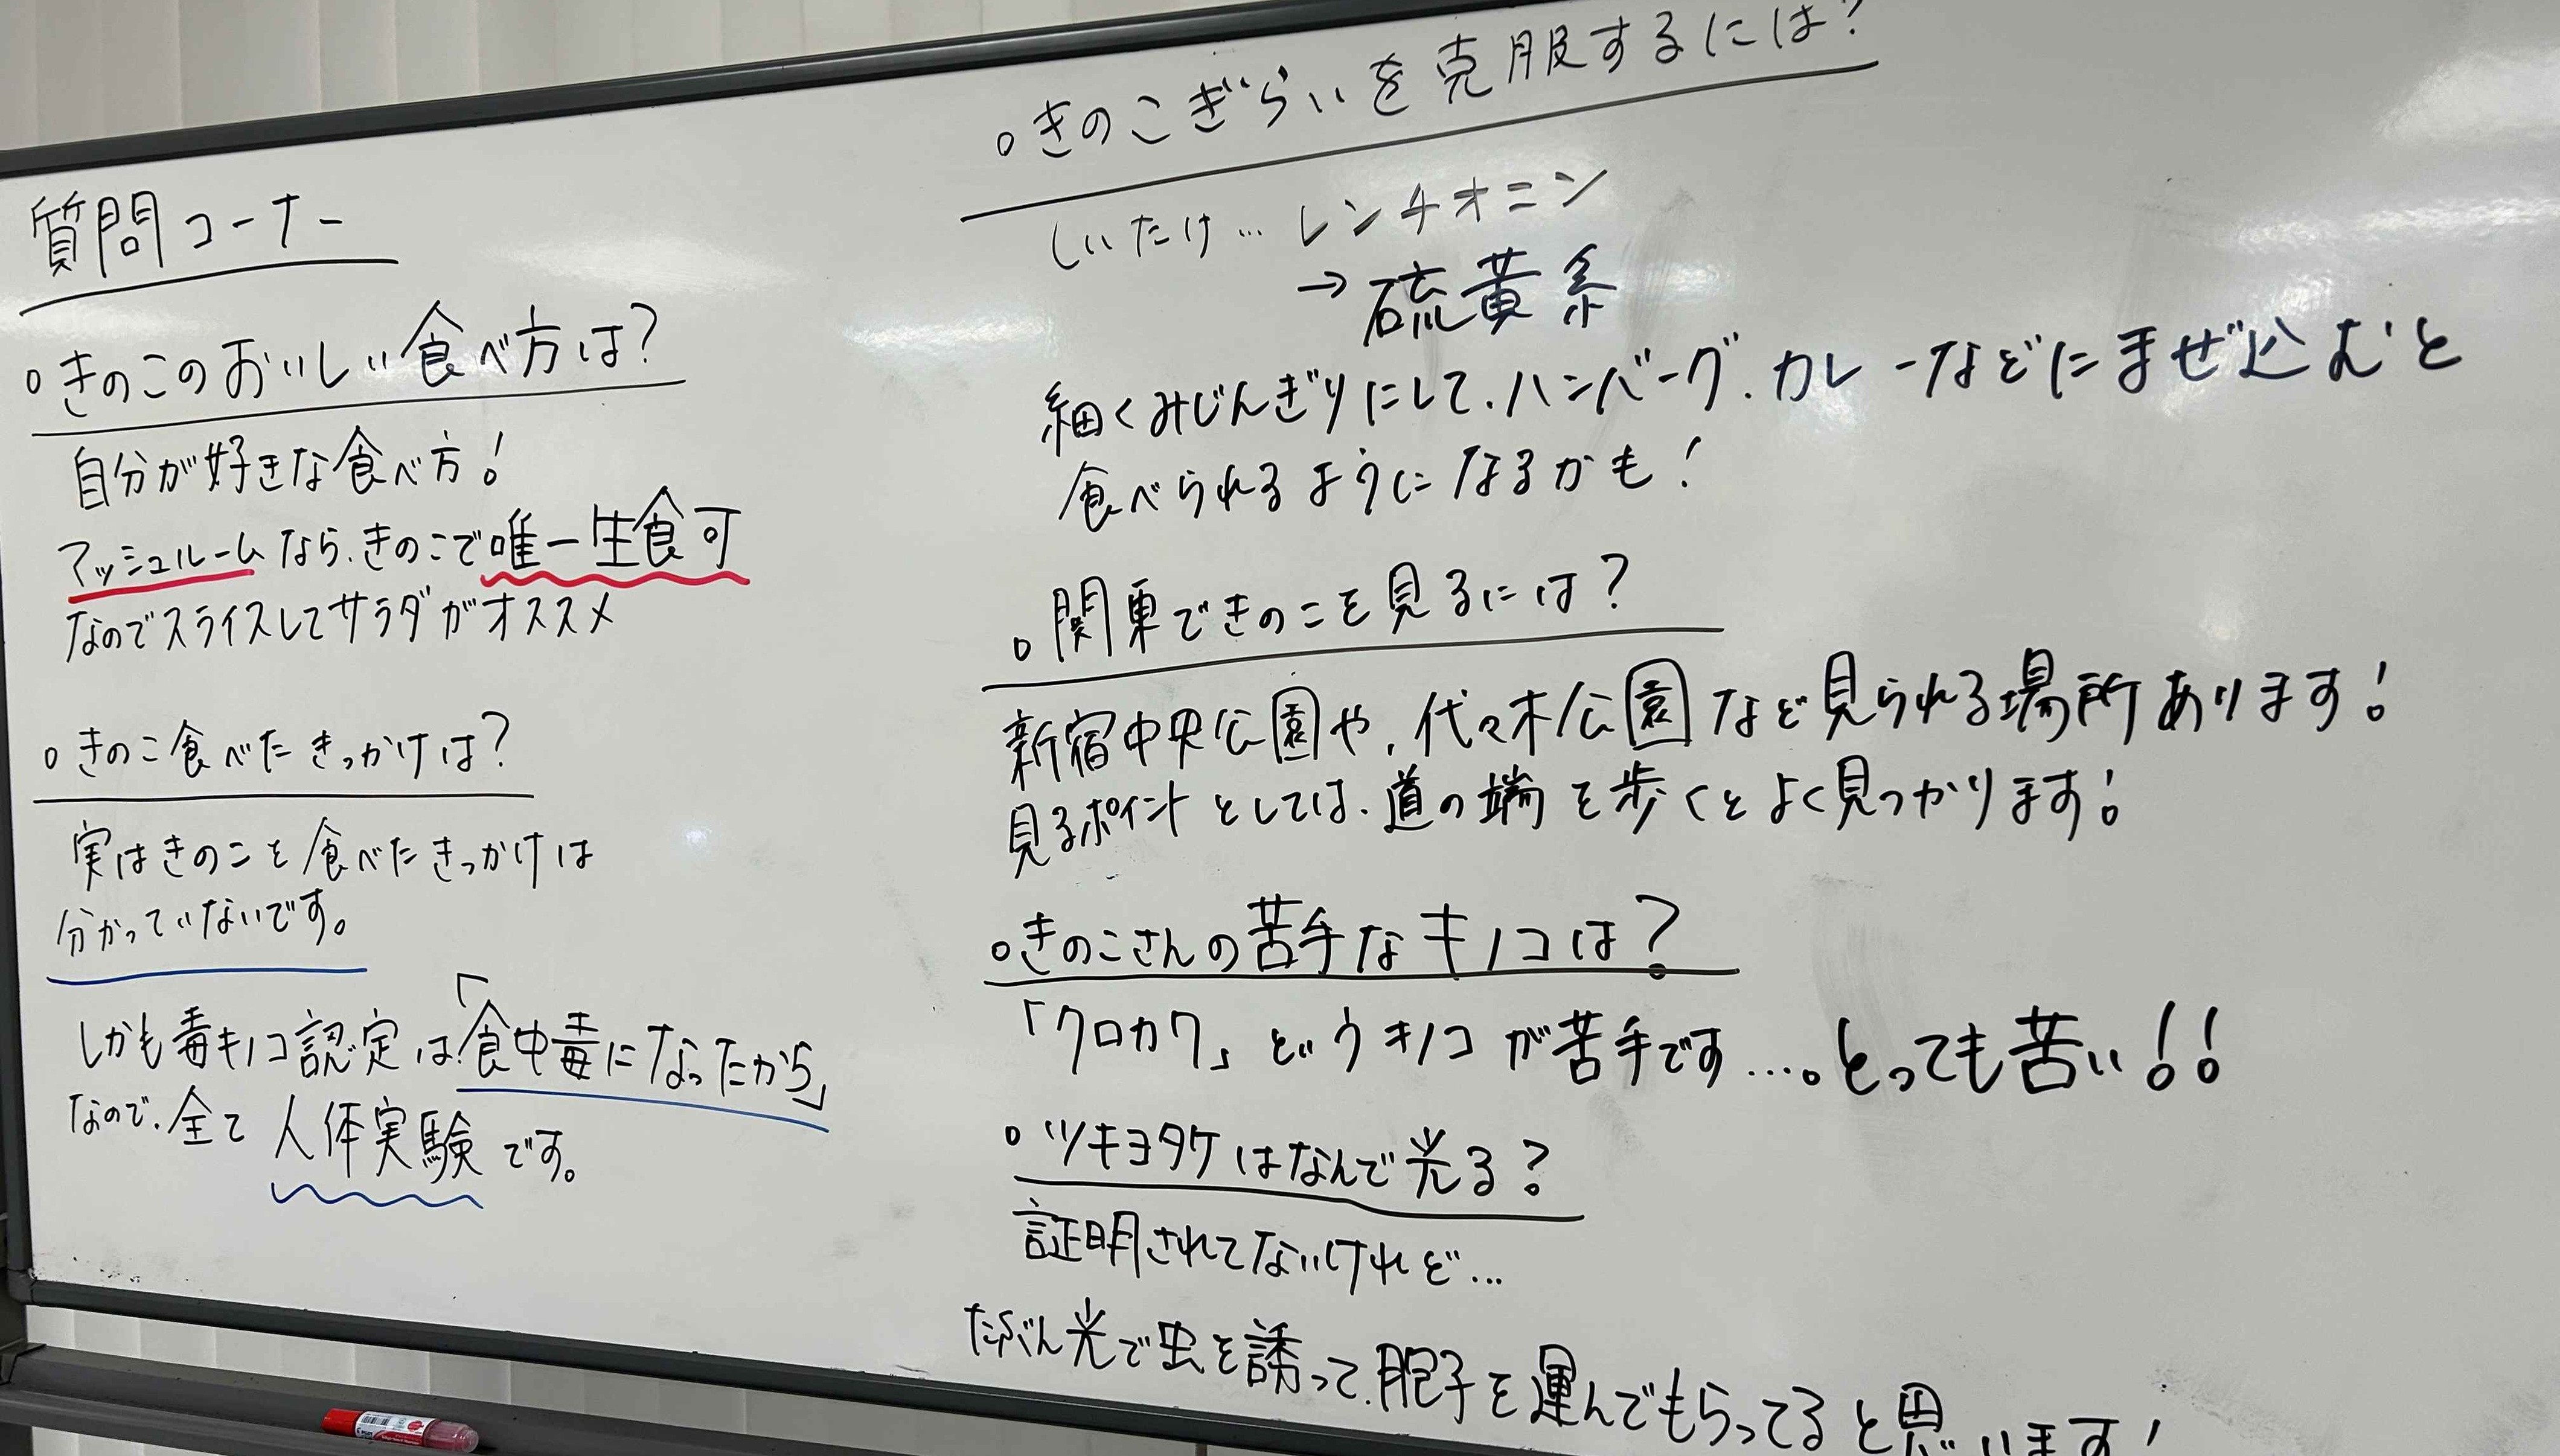 質問コーナー
○きのこのおいしい食べ方は?
自分が好きな食べ方!
マッシュルームなら、きのこで唯一生食可
なのでスライスしてサラダがオススメ
○きのこ食べたきっかけは?
実はきのこを食べたきっかけは
分かっていないです。
しかも毒キノコ認定は「食中毒になったから」
なので、全て人体実験です。
○きのこぎらいを克服するには?
しいたけ…レンチオニン
→硫黄系
細くみじんぎりにして、ハンバーグ、カレーなどにまぜ込むと
食べられるようになるかも!
○関東できのこを見るには?
新宿中央公園や、代々木公園など見られる場所あります!
見るポイントとしては、道の端を歩くとよく見つかります!
○きのこさんの苦手なキノコは?
「クロカワ」というキノコが苦手です…。とっても苦い!!
○ツキヨタケはなんで光る?
証明されてないけれど…
たぶん光で虫を誘って、胞子を運んでもらってると思います!